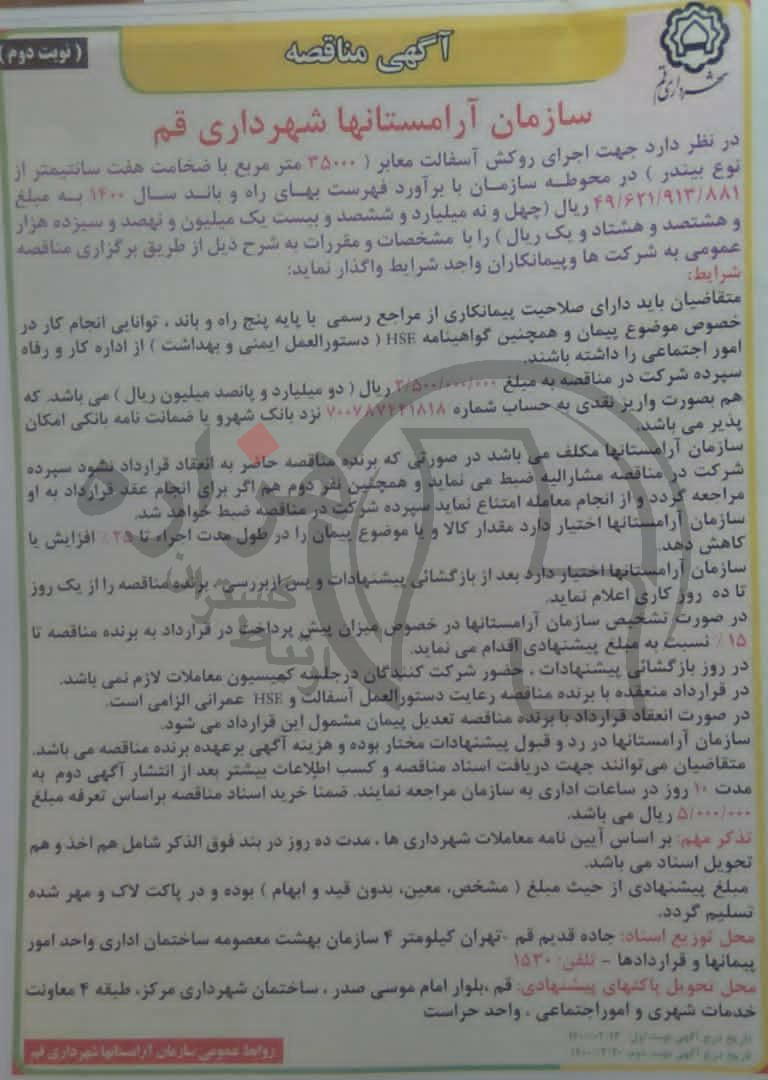 شهرداری قم
آگهی مناقصه
( نوبت دوم )
سازمان آرامستانها شهرداری قم
در نظر دارد جهت اجرای روکش آسفالت معابر ( ۳۵۰۰۰ متر مربع با ضخامت هفت سانتیمتر از
نوع بیندر ) در محوطه سازمان با برآورد فهرست بهای راه و باند سال ۱۴۰۰ به مبلغ
۴۹/۶۲۱/۹۱۳/۸۸۱ ریال (چهل و نه میلیارد و ششصد و بیست یک میلیون و نهصد و سیزده هزار
و هشتصد و هشتاد و یک ریال ) را با مشخصات و مقررات به شرح ذیل از طریق برگزاری مناقصه
عمومی به شرکت ها وپیمانکاران واجد شرایط واگذار نماید:
شرایط:
متقاضیان باید دارای صلاحیت پیمانکاری از مراجع رسمی با پایه پنج راه و باند ، توانایی انجام کار در
خصوص موضوع پیمان و همچنین گواهینامه HSE ( دستورالعمل ایمنی و بهداشت ) از اداره کار و رفاه
امور اجتماعی را داشته باشند.
سپرده شرکت در مناقصه به مبلغ ۲/۵۰۰/۰۰۰/۰۰۰ ریال ( دو میلیارد و پانصد میلیون ریال ) می باشد. که
هم بصورت واریز نقدی به حساب شماره نزد بانک شهرو یا ضمانت نامه بانکی امکان
پذیر می باشد.
سازمان آرامستانها مکلف می باشد در صورتی که برنده مناقصه حاضر به انعقاد قرارداد نشود سپرده
شرکت در مناقصه مشارالیه ضبط می نماید و همچنین نفر دوم هم اگر برای انجام عقد قرارداد به او
مراجعه گردد و از انجام معامله امتناع نماید سپرده شرکت در مناقصه ضبط خواهد شد.
سازمان آرامستانها اختیار دارد مقدار کالا و یا موضوع پیمان را در طول مدت اجراء تا ۲۵٪ افزایش یا
کاهش دهد.
سازمان آرامستانها اختیار دارد بعد از بازگشائی پیشنهادات و پس ازبررسی ، برنده مناقصه را از یک روز
تا ده روز کاری اعلام نماید.
در صورت تشخیص سازمان آرامستانها در خصوص میزان پیش پرداخت در قرارداد به برنده مناقصه تا
۱۵ ٪ نسبت به مبلغ پیشنهادی اقدام می نماید.
در روز بازگشائی پیشنهادات ، حضور شرکت کنندگان درجلسه کمیسیون معاملات لازم نمی باشد.
در قرارداد منعقده با برنده مناقصه رعایت دستورالعمل آسفالت و HSE عمرانی الزامی است.
در صورت انعقاد قرارداد با برنده مناقصه تعدیل پیمان مشمول این قرارداد می شود.
سازمان آرامستانها در رد و قبول پیشنهادات مختار بوده و هزینه آگهی برعهده برنده مناقصه می باشد.
متقاضیان می توانند جهت دریافت اسناد مناقصه و کسب اطلاعات بیشتر بعد از انتشار آگهی دوم به
مدت ۱۰ روز در ساعات اداری به سازمان مراجعه نمایند. ضمنا خرید اسناد مناقصه براساس تعرفه مبلغ
۵/۰۰۰/۰۰۰ ریال می باشد.
تذکر مهم: بر اساس آیین نامه معاملات شهرداری ها ، مدت ده روز در بند فوق الذکر شامل هم اخذ و هم
تحویل اسناد می باشد.
مبلغ پیشنهادی از حیث مبلغ ( مشخص، معین، بدون قید و ابهام ) بوده و در پاکت لاک و مهر شده
تسلیم گردد.
محل توزیع اسناد: جاده قدیم قم -تهران کیلومتر ۴ سازمان بهشت معصومه ساختمان اداری واحد امور
پیمانها و قراردادها - تلفن: ۱۵۳۰
محل تحویل پاکتهای پیشنهادی: قم ،بلوار امام موسی صدر ، ساختمان شهرداری مرکز، طبقه ۴ معاونت
خدمات شهری و اموراجتماعی ، واحد حراست
تاریخ درج آگهی نوبت اول:
تاریخ درج آگهی نوبت دوم:
روابط عمومی سازمان آرامستانها شهرداری قم
هزاره